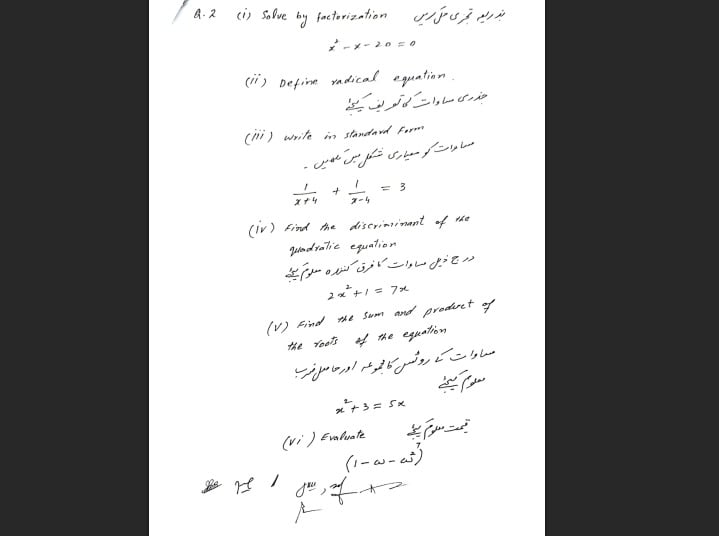 Q.2 (i) Solve by factorization بذریعہ تجزی حل کریں
x² - x - 20 = 0
(ii) Define radical equation.
جذری مساوات کی تعریف کیجئے
(iii) write in standard Form
مساوات کو معیاری شکل میں لکھیں۔
1/x+4 + 1/x-4 = 3
(iv) Find the discriminant of the
quadratic equation
درج ذیل مساوات کا فرق کنندہ معلوم کیجئے
2x² + 1 = 7x
(v) Find the sum and product of
the roots of the equation
مساوات کے روٹس کا مجموعہ اور حاصل ضرب
معلوم کیجئے
x² + 3 = 5x
(vi) Evaluate قیمت معلوم کیجئے
(1 - ω - ω²)⁷